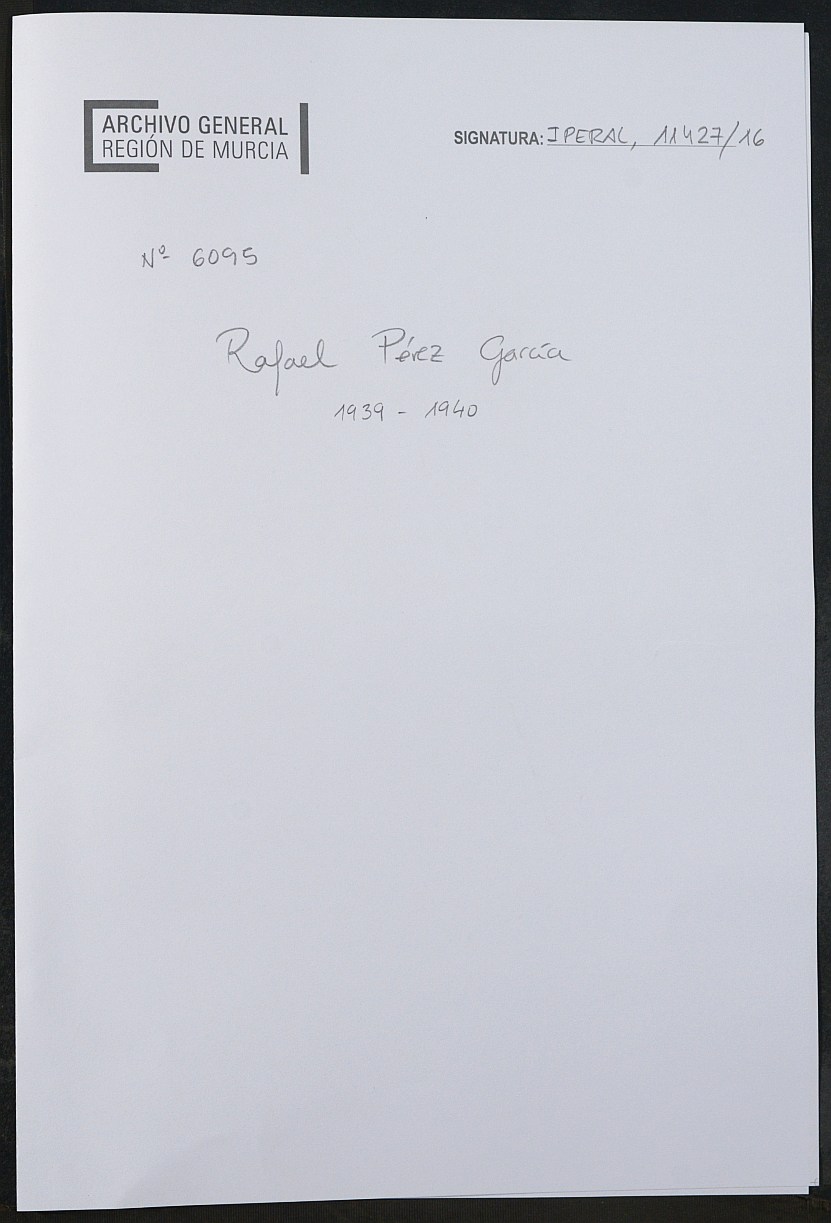 ARCHIVO GENERAL
REGIÓN DE MURCIA
SIGNATURA: IPERAL, 11427/16
Nº 6095
Rafael Pérez García
1939 - 1940